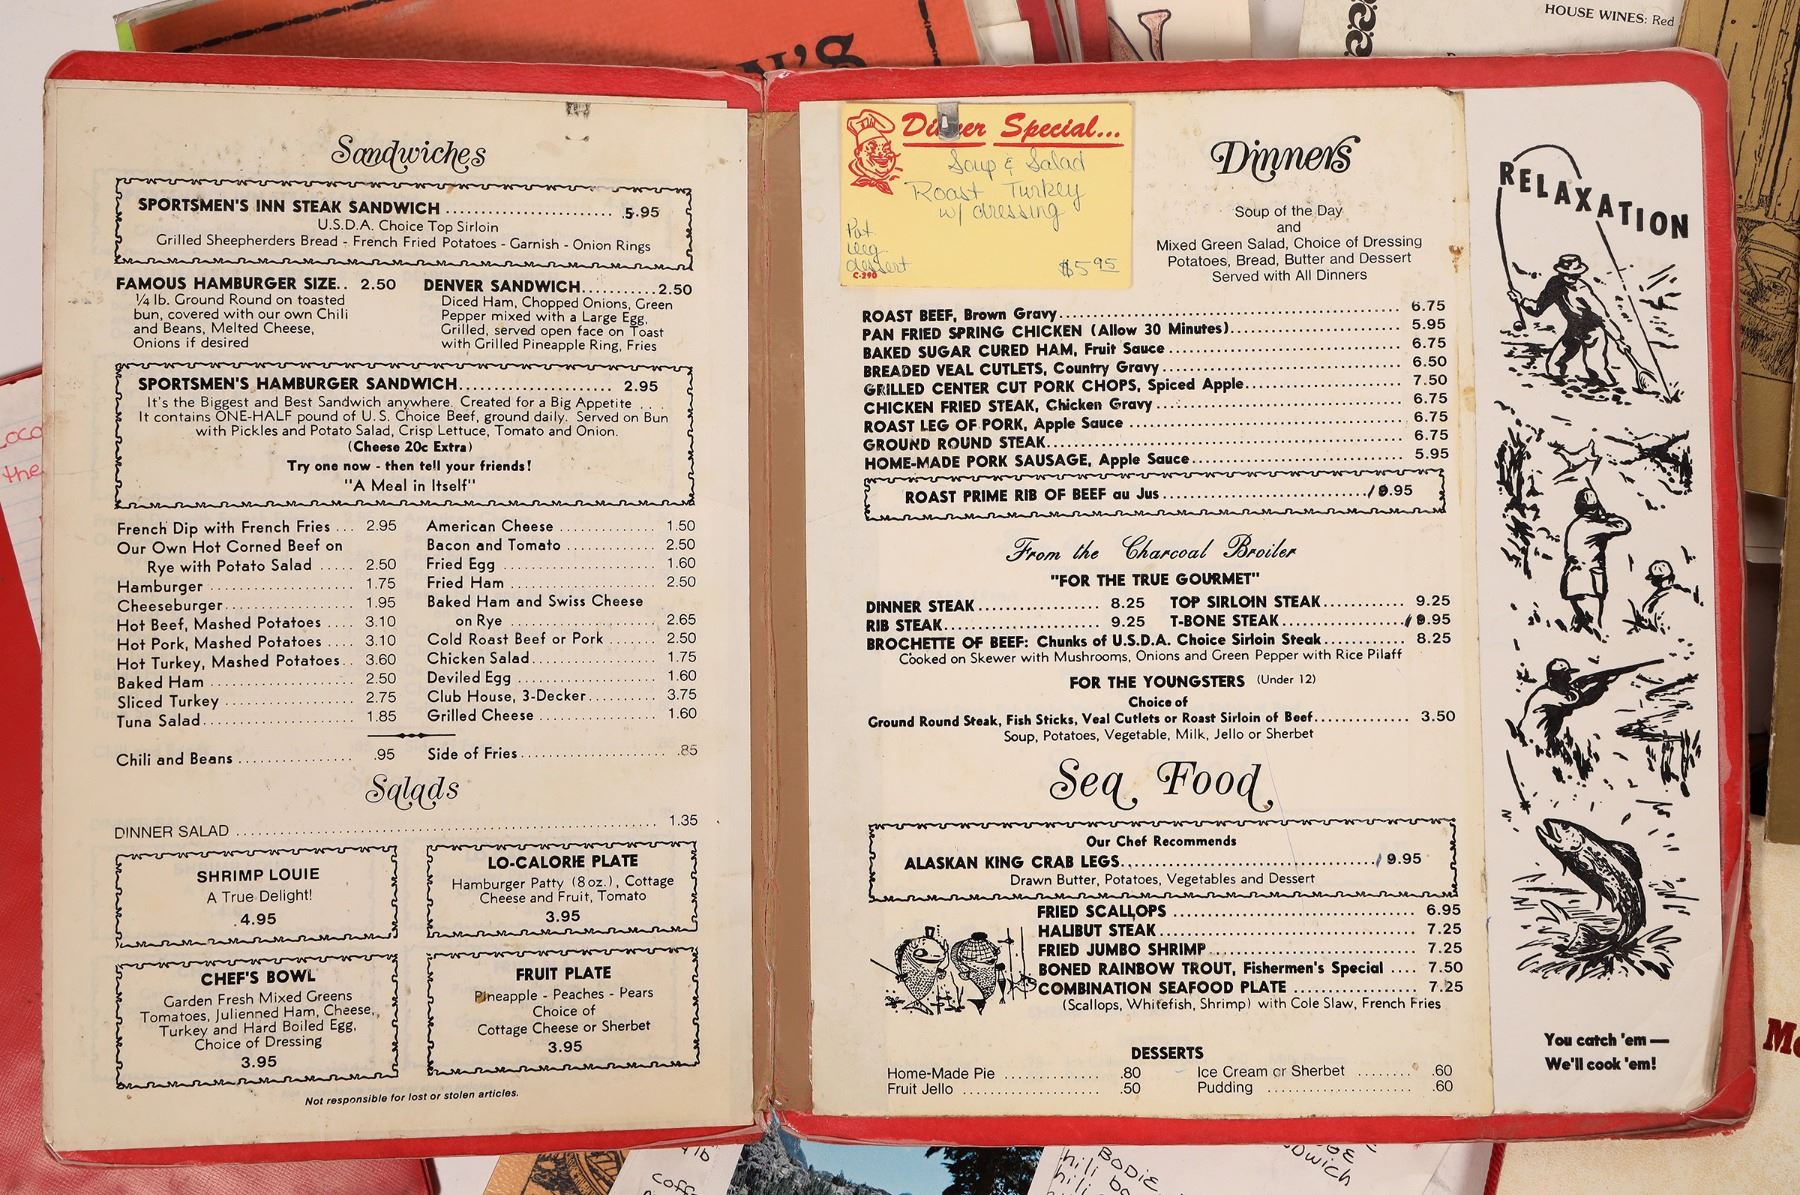 HOUSE WINES: Red
Sandwiches
SPORTSMEN'S INN STEAK SANDWICH 5.95
U.S.D.A. Choice Top Sirloin
Grilled Sheepherders Bread - French Fried Potatoes - Garnish - Onion Rings
FAMOUS HAMBURGER SIZE.. 2.50
1/4 lb. Ground Round on toasted
bun, covered with our own Chili
and Beans, Melted Cheese,
Onions if desired
DENVER SANDWICH 2.50
Diced Ham, Chopped Onions, Green
Pepper mixed with a Large Egg,
Grilled, served open face on Toast
with Grilled Pineapple Ring, Fries
SPORTSMEN'S HAMBURGER SANDWICH 2.95
It's the Biggest and Best Sandwich anywhere. Created for a Big Appetite . . .
It contains ONE-HALF pound of U.S. Choice Beef, ground daily. Served on Bun
with Pickles and Potato Salad, Crisp Lettuce, Tomato and Onion.
(Cheese 20c Extra)
Try one now - then tell your friends!
"A Meal in Itself"
French Dip with French Fries ... 2.95
Our Own Hot Corned Beef on
Rye with Potato Salad ..... 2.50
Hamburger 1.75
Cheeseburger 1.95
Hot Beef, Mashed Potatoes .... 3.10
Hot Pork, Mashed Potatoes .... 3.10
Hot Turkey, Mashed Potatoes.. 3.60
Baked Ham 2.50
Sliced Turkey 2.75
Tuna Salad 1.85
Chili and Beans .95
American Cheese 1.50
Bacon and Tomato 2.50
Fried Egg 1.60
Fried Ham 2.50
Baked Ham and Swiss Cheese
on Rye 2.65
Cold Roast Beef or Pork 2.50
Chicken Salad 1.75
Deviled Egg 1.60
Club House, 3-Decker 3.75
Grilled Cheese 1.60
Side of Fries .85
Salads
DINNER SALAD 1.35
SHRIMP LOUIE
A True Delight!
4.95
LO-CALORIE PLATE
Hamburger Patty (8 oz.), Cottage
Cheese and Fruit, Tomato
3.95
CHEF'S BOWL
Garden Fresh Mixed Greens
Tomatoes, Julienned Ham, Cheese,
Turkey and Hard Boiled Egg,
Choice of Dressing
3.95
FRUIT PLATE
Pineapple - Peaches - Pears
Choice of
Cottage Cheese or Sherbet
3.95
Not responsible for lost or stolen articles.
Dinner Special...
Soup & Salad
Roast Turkey
w/ dressing
Pot
veg
dessert
$5 95
C-290
Dinners
Soup of the Day
and
Mixed Green Salad, Choice of Dressing
Potatoes, Bread, Butter and Dessert
Served with All Dinners
ROAST BEEF, Brown Gravy 6.75
PAN FRIED SPRING CHICKEN (Allow 30 Minutes) 5.95
BAKED SUGAR CURED HAM, Fruit Sauce 6.75
BREADED VEAL CUTLETS, Country Gravy 6.50
GRILLED CENTER CUT PORK CHOPS, Spiced Apple 7.50
CHICKEN FRIED STEAK, Chicken Gravy 6.75
ROAST LEG OF PORK, Apple Sauce 6.75
GROUND ROUND STEAK 6.75
HOME-MADE PORK SAUSAGE, Apple Sauce 5.95
ROAST PRIME RIB OF BEEF au Jus 10.95
From the Charcoal Broiler
"FOR THE TRUE GOURMET"
DINNER STEAK 8.25 TOP SIRLOIN STEAK 9.25
RIB STEAK 9.25 T-BONE STEAK 10.95
BROCHETTE OF BEEF: Chunks of U.S.D.A. Choice Sirloin Steak 8.25
Cooked on Skewer with Mushrooms, Onions and Green Pepper with Rice Pilaff
FOR THE YOUNGSTERS (Under 12)
Choice of
Ground Round Steak, Fish Sticks, Veal Cutlets or Roast Sirloin of Beef 3.50
Soup, Potatoes, Vegetable, Milk, Jello or Sherbet
Sea Food
Our Chef Recommends
ALASKAN KING CRAB LEGS 19.95
Drawn Butter, Potatoes, Vegetables and Dessert
FRIED SCALLOPS 6.95
HALIBUT STEAK 7.25
FRIED JUMBO SHRIMP 7.25
BONED RAINBOW TROUT, Fishermen's Special .... 7.50
COMBINATION SEAFOOD PLATE 7.25
(Scallops, Whitefish, Shrimp) with Cole Slaw, French Fries
DESSERTS
Home-Made Pie .80 Ice Cream or Sherbet .60
Fruit Jello .50 Pudding .60
RELAXATION
You catch 'em —
We'll cook 'em!
the
BODIE